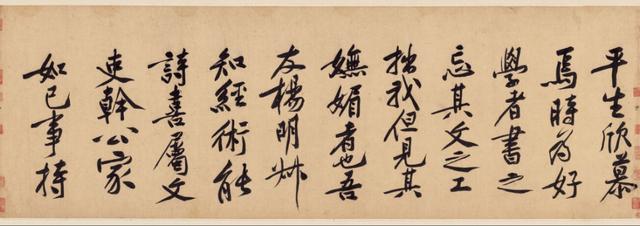 平生欣慕
焉時為好
學者書之
忘其文之工
拙我但見其
嫵媚者也吾
友楊明叔
知經術能
詩喜屬文
吏幹公家
如己事持